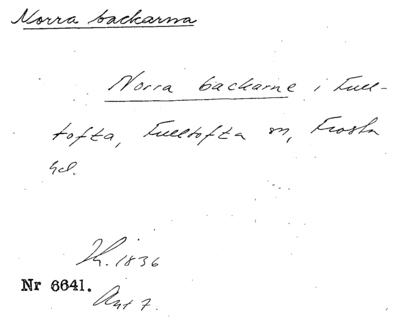 Norra backarna
Norra backarne i Full-
tofta, Fulltofta sn, Frosta
hd.
Fh. 1836
Nr 6641.
Ant 7.